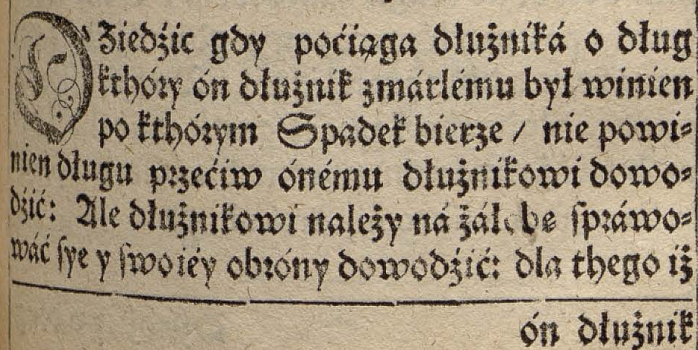 Dźiedźic gdy poćiąga dłużniká o dług
kthóry ón dłużnik zmárłému był winien
po kthórym Spadek bierze / nie powi⸗
nien długu przećiw ónému dłużnikowi dowo⸗
dźić: Ale dłużnikowi należy ná żáłobę spráwo⸗
wáć sye y swoiéy obróny dowodźić: dla thego iż
ón dłużnik